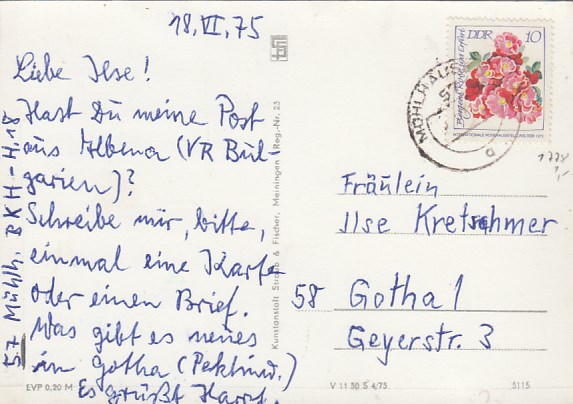 18.VI.75
Liebe Ilse!
Hast Du meine Post
aus Albena (VR Bul-
garien)?
Schreibe mir, bitte,
einmal eine Karte
oder einen Brief.
Was gibt es neues
in Gotha (
Es grüßt
57 Mühlh. BKH-H.18
Kunstanstalt Straub & Fischer, Meiningen Reg.-Nr. 23
DDR 10
INTERNATIONALE ROSENAUSSTELLUNG 1972
MÜHLHAUSEN
1778
1,-
Fräulein
Ilse Kretschmer
58 Gotha 1
Geyerstr. 3
EVP 0,20 M
V 11 50 S 4/75
5115